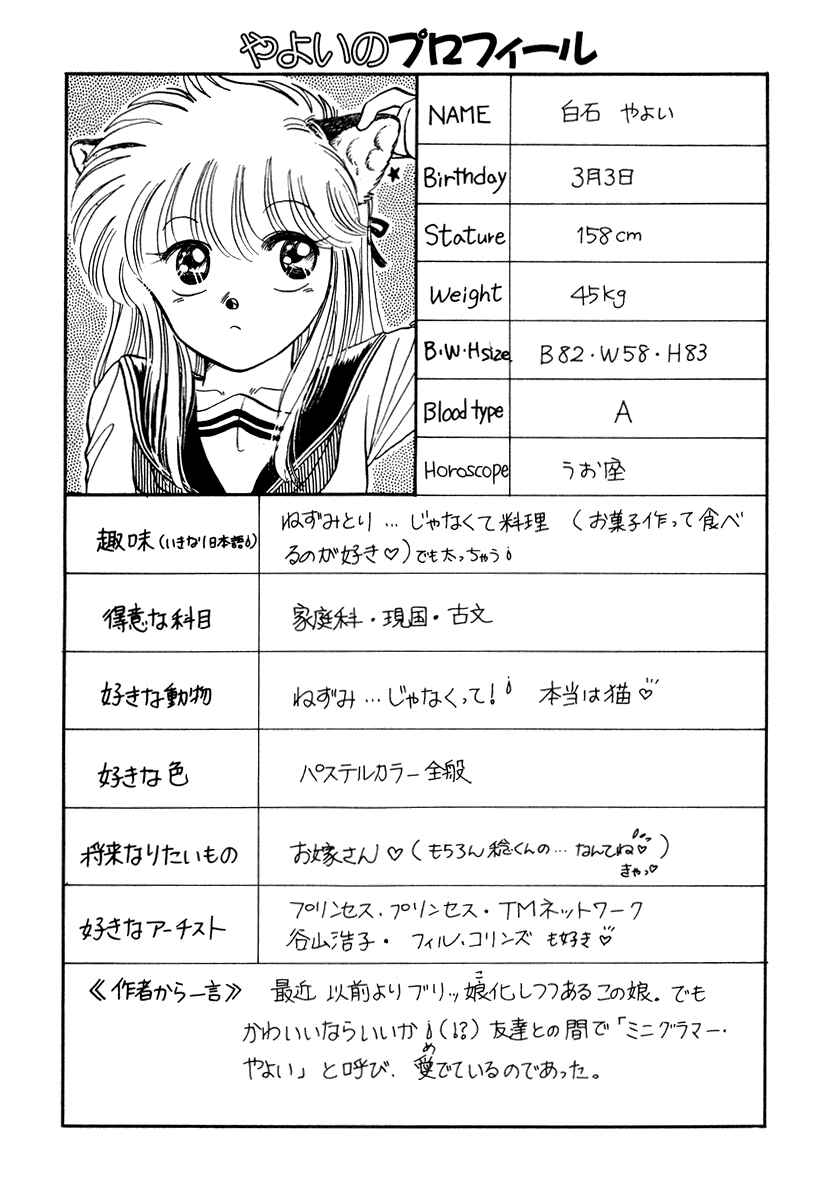 やよいのプロフィール
NAME 白石 やよい
Birthday 3月3日
Stature 158cm
Weight 45kg
B・W・Hsize B82・W58・H83
Blood type A
Horoscope うお座
趣味(いきなり日本語) ねずみとり…じゃなくて料理 (お菓子作って食べ
るのが好き♡)でも太っちゃう
得意な科目 家庭科・現国・古文
好きな動物 ねずみ…じゃなくって! 本当は猫♡
好きな色 パステルカラー全般
将来なりたいもの お嫁さん♡(もちろん稔くんの…なんてね♡)
きゃっ♡
好きなアーチスト プリンセス・プリンセス・TMネットワーク
谷山浩子・フィル・コリンズ も好き♡
《作者から一言》 最近 以前よりブリッ娘化しつつあるこの娘。でも
かわいいならいいか(!?)友達との間で「ミニグラマー・
やよい」と呼び、愛でているのであった。